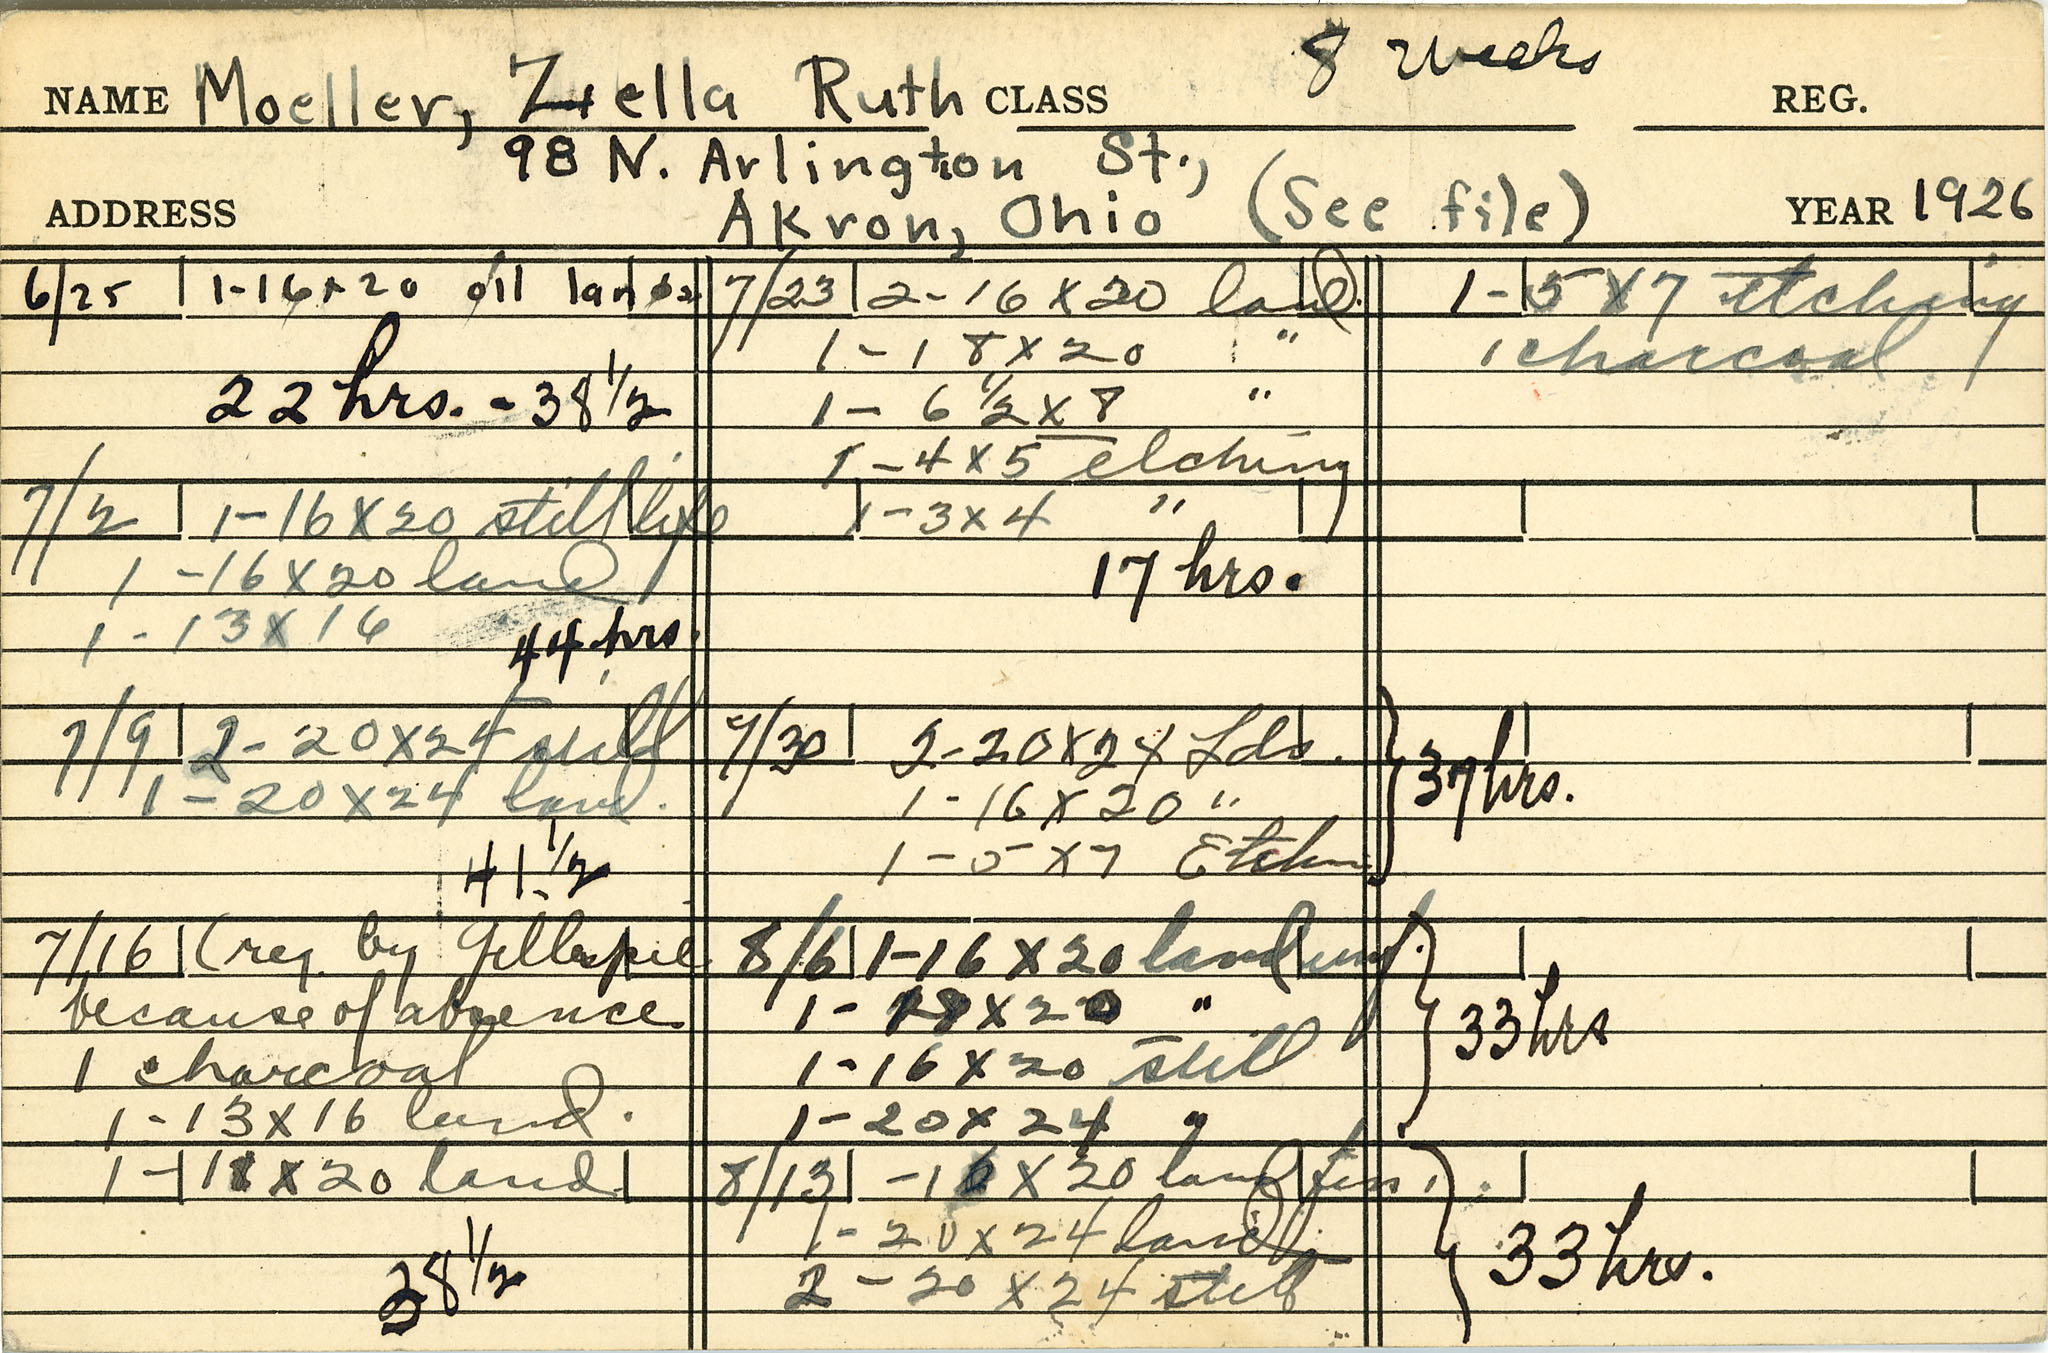 8 Weeks
NAME Moeller, Zella Ruth CLASS REG.
98 N. Arlington St.,
ADDRESS Akron, Ohio (See file) YEAR 1926
6/25 1-16x20 oil lands.
22 hrs. - 38 1/2
7/2 1-16x20 still life
1-16x20 land
1-13x16
44 hrs.
7/9 2-20x24 still
1-20x24 land.
41 1/2
7/16 (req. by Gillespie
because of absence
1 charcoal
1-13x16 land.
1-18x20 land.
38 1/2
7/23 2-16x20 land.
1-18x20 "
1-6 1/2x8 "
1-4x5 etching
1-3x4 "
17 hrs.
7/30 2-20x24 Lds.
1-16x20 "
1-5x7 Etchin
37 hrs.
8/6 1-16x20 land unf.
1-18x20 "
1-16x20 still
1-20x24 "
33 hrs
8/13 -16x20 land fin.
1-20x24 land
2-20x24 still
33 hrs.
1-5x7 etching
1 charcoal